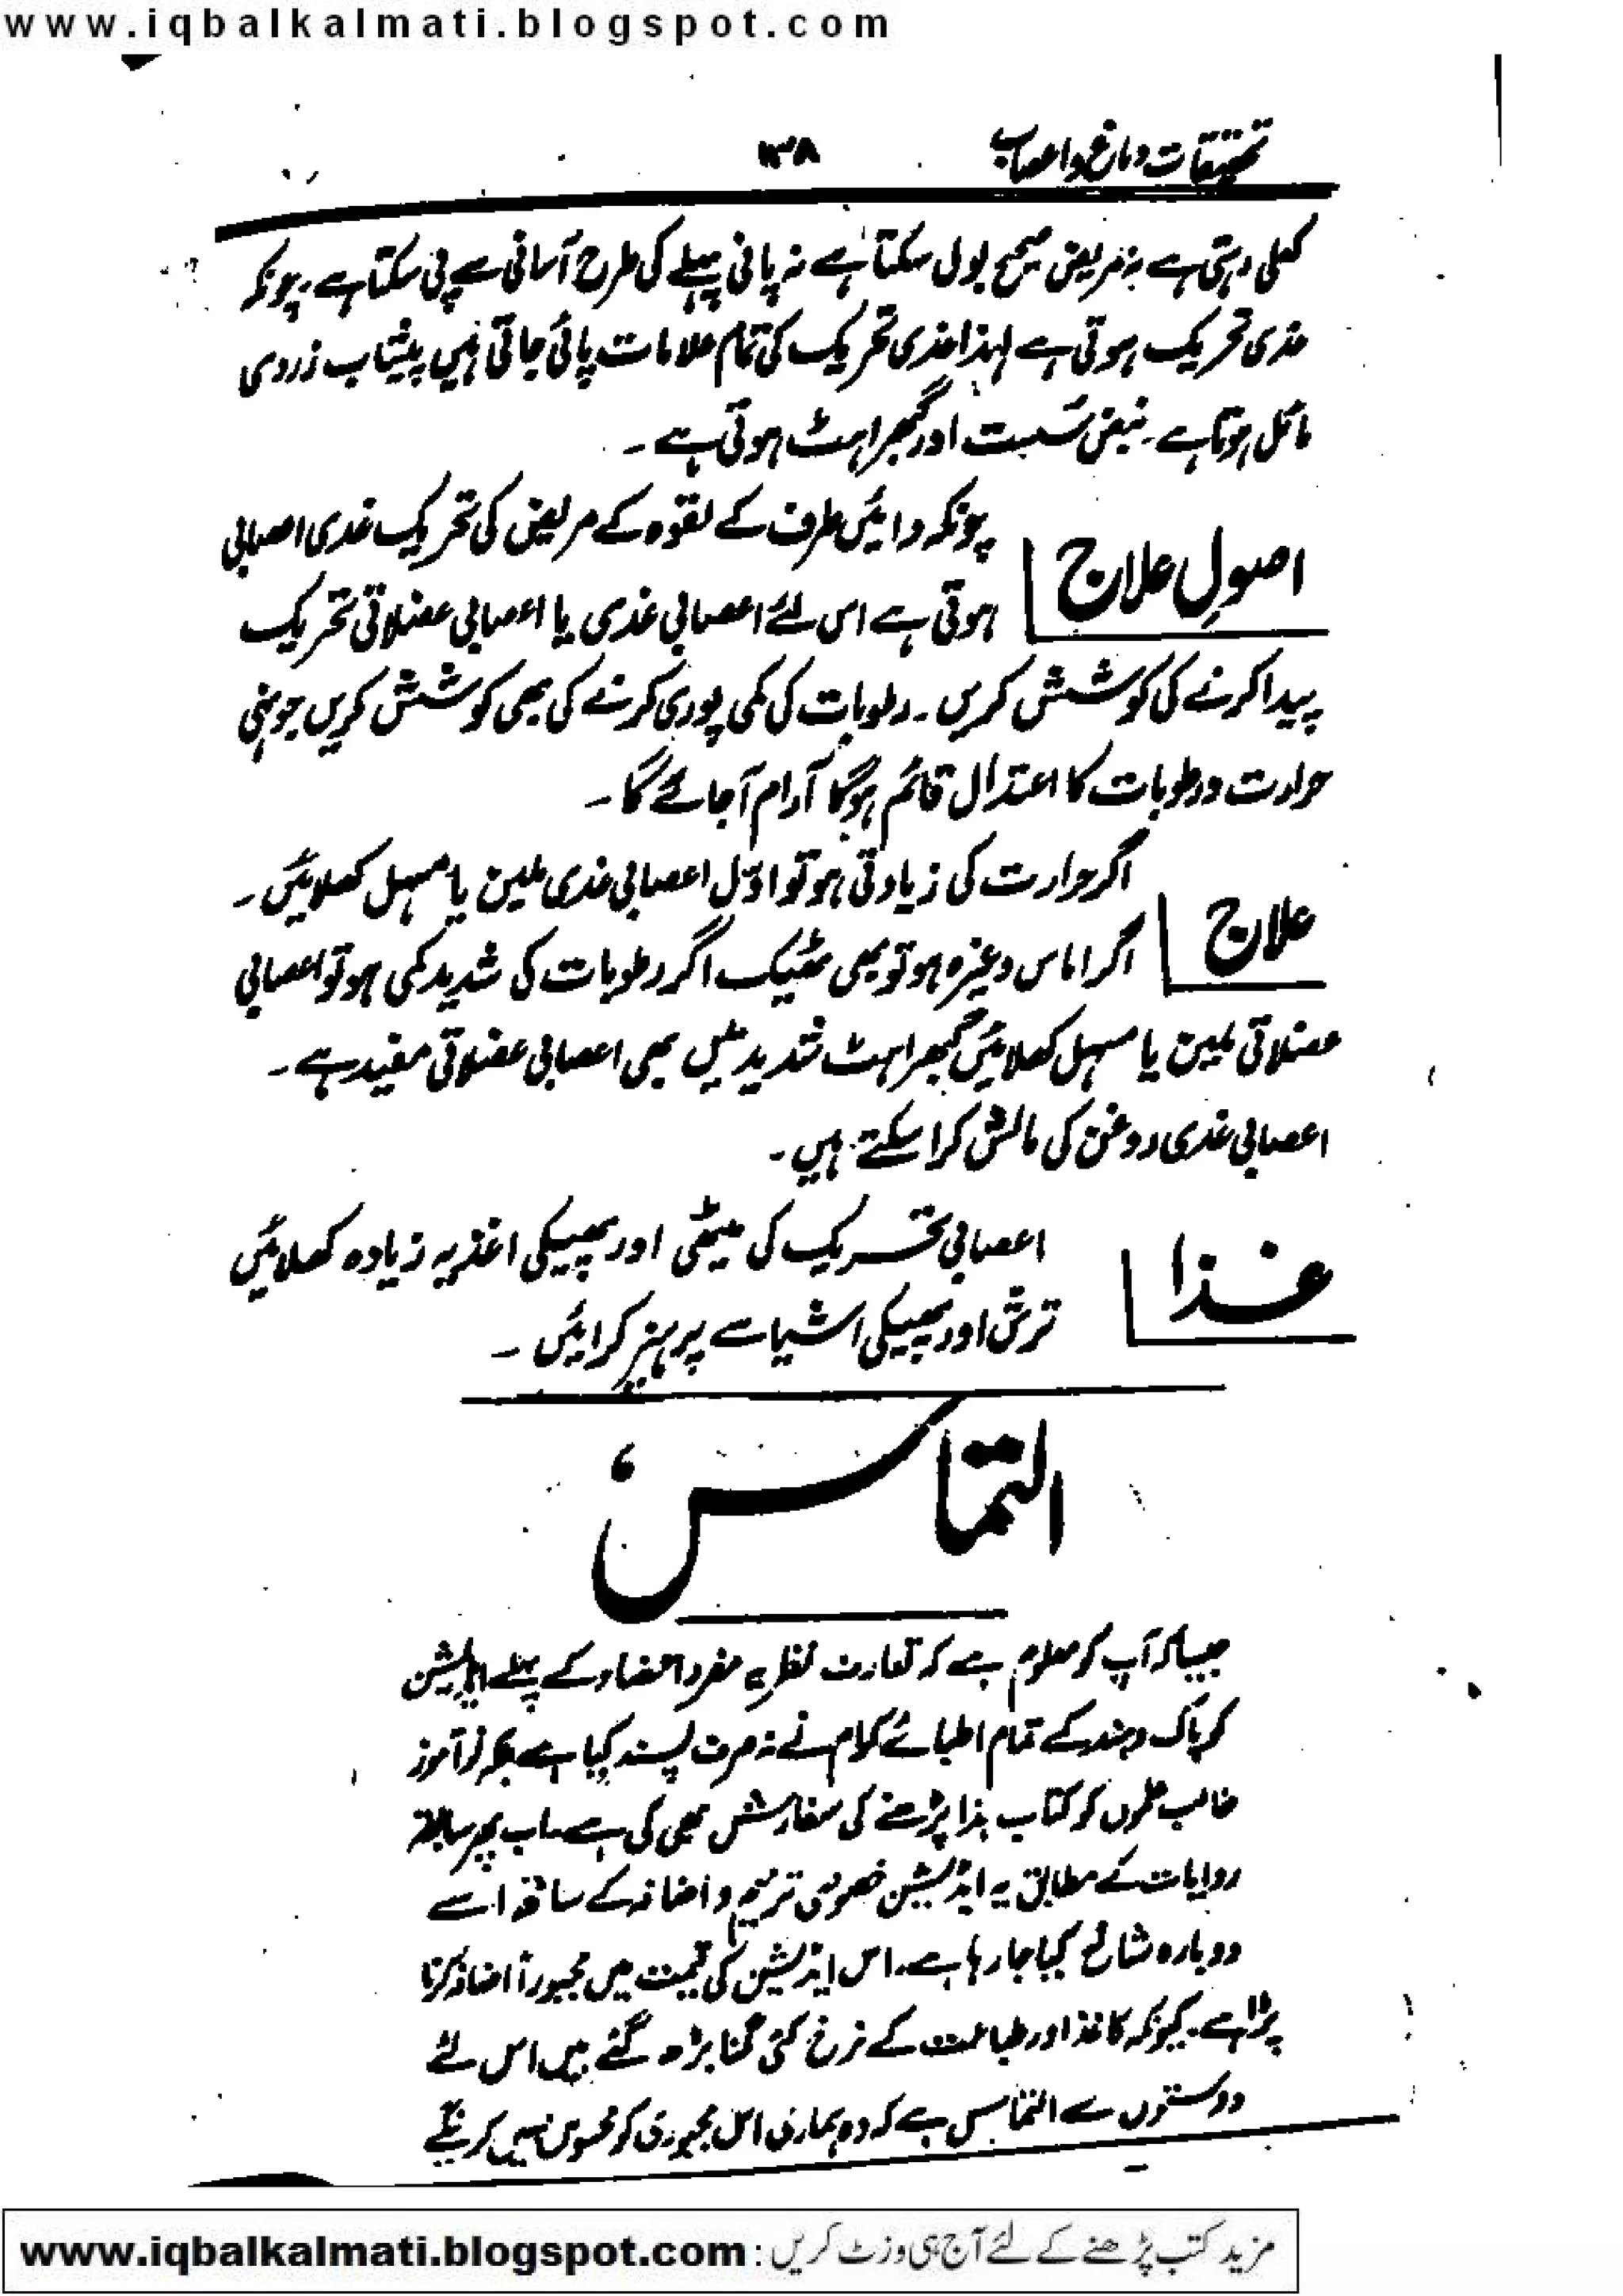 www.iqbalkalmati.blogspot.com
تحقیقات دماغ و اعصاب
۱۳۸
کھلی رہتی ہے نہ مریض صحیح بول سکتا ہے نہ پانی پہلے کی طرح آسانی سے پی سکتا ہے۔ چونکہ
غدی تحریک ہوتی ہے لہذا غدی تحریک کی تمام علامات پائی جاتی ہیں پیشاب زردی
مائل ہوتا ہے۔ نبض سست اور گھبراہٹ ہوتی ہے۔
اصولِ علاج
چونکہ دائیں طرف کے لقوہ کے مریض کی تحریک غدی اعصابی
ہوتی ہے اس لئے اعصابی غدی یا اعصابی عضلاتی تحریک
پیدا کرنے کی کوشش کریں۔ رطوبات کی کمی پوری کرنے کی بھی کوشش کریں جونہی
حرارت و رطوبات کا اعتدال قائم ہوگا آرام آجائے گا۔
علاج
اگر حرارت کی زیادتی ہو تو اوّل اعصابی غدی ملین یا مسہل کھلائیں۔
اگر اماس وغیرہ ہو تو بھی ٹھیک اگر رطوبات کی شدید کمی ہو تو اعصابی
عضلاتی ملین یا مسہل کھلائیں گھبراہٹ شدید میں بھی اعصابی عضلاتی مفید ہے۔
اعصابی غدی روغن کی مالش کرا سکتے ہیں۔
غذا
اعصابی تحریک کی میٹھی اور پھیکی اغذیہ زیادہ کھلائیں
ترش اور پھیکی اشیا سے پرہیز کرائیں۔
التماس
جیسا کہ آپ کو معلوم ہے کہ تعارف نظریہ مفرد اعضاء کے پہلے ایڈیشن
کو پاک وہند کے تمام اطبائے کلام نے نہ صرف پسند کیا ہے بلکہ نو آموز
طالب علموں کو کتاب ہذا پڑھنے کی سفارش بھی کی ہے۔ اب پھر سابقہ
روایات کے مطابق یہ ایڈیشن خصوصی ترمیم و اضافہ کے ساتھ اسے
دوبارہ شائع کیا جا رہا ہے۔ اس ایڈیشن کی قیمت میں مجبوراً اضافہ کرنا
پڑا ہے۔ کیونکہ کاغذ اور طباعت کے نرخ کئی گنا بڑھ گئے ہیں اس لئے
دوستوں سے التماس ہے کہ وہ ہماری اس مجبوری کو محسوس نہیں کرینگے
مزید کتب پڑھنے کے لئے آج ہی وزٹ کریں : www.iqbalkalmati.blogspot.com